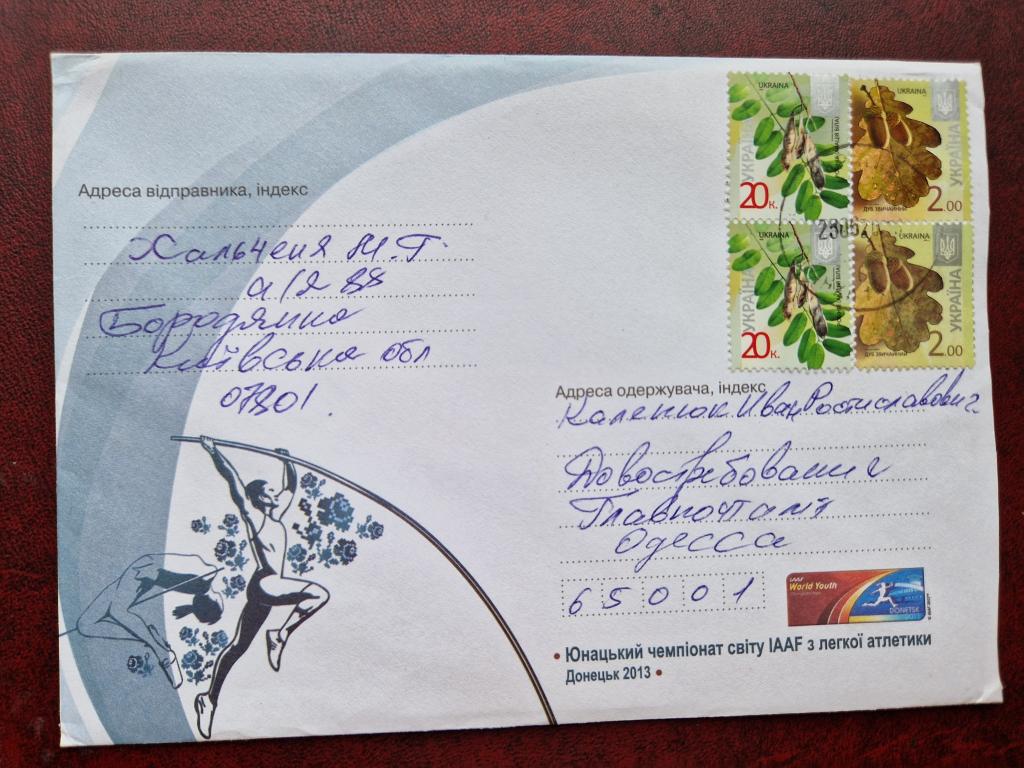 UKRAINA
УКРАЇНА
20 к.
UKRAINA
УКРАЇНА
ДУБ ЗВИЧАЙНИЙ
2.00
UKRAINA
УКРАЇНА
20 к.
UKRAINA
УКРАЇНА
ДУБ ЗВИЧАЙНИЙ
2.00
Адреса відправника, індекс
М. Г.
а/я 88
Бородянка
Київська обл
07801.
Адреса одержувача, індекс
Каленюк Иван Ростиславович
Довостребования
Главпочтамт
Одесса
65001
IAAF
World Youth
DONETSK
• Юнацький чемпіонат світу IAAF з легкої атлетики
Донецьк 2013 •